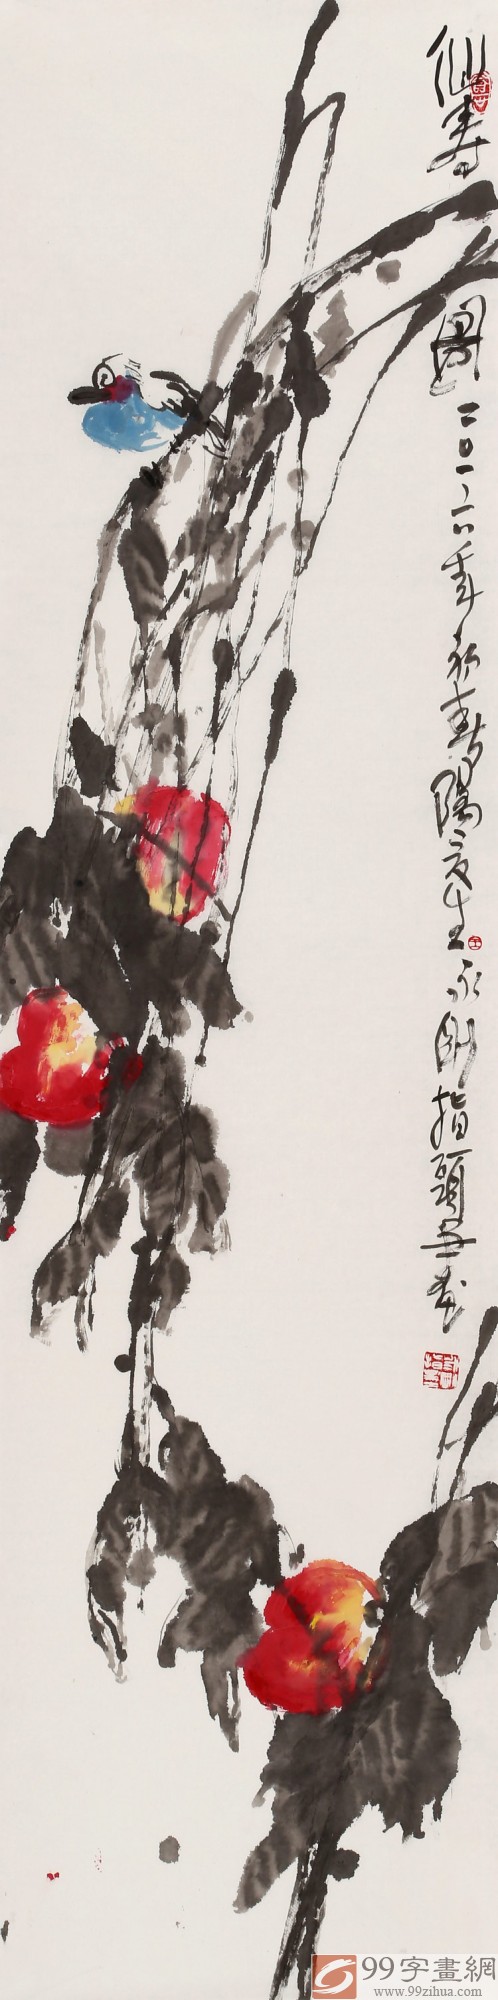 仙寿图二〇一六年初春陽彦生永刚指頭画
99字畫網
www.99zihua.com